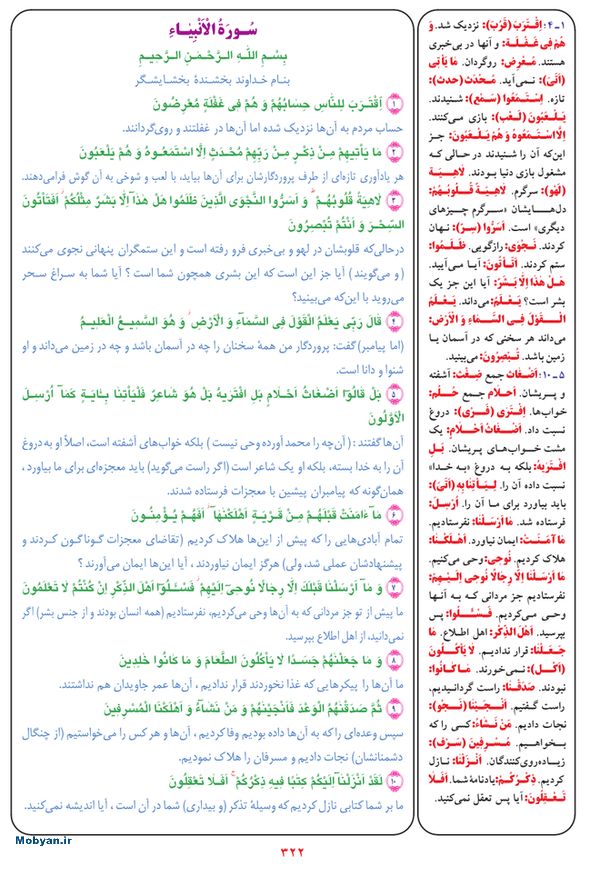 سُـورَةُ الْاَنْبِيَـاءِ
بِسْـمِ اللّٰهِ الـرَّحْمـٰنِ الـرَّحيـمِ
بنـام خـداوند بخشنـدهٔ بخشایشـگر
۱ اِقْتَـرَبَ لِلنّاسِ حِسابُهُمْ وَ هُمْ فى غَفْلَةٍ مُعْرِضُونَ
حساب مردم به آن‌ها نزدیک شده اما آن‌ها در غفلتند و روی‌گردانند.
۲ ما يَأْتيهِمْ مِـنْ ذِكْـرٍ مِـنْ رَبِّهِمْ مُحْدَثٍ اِلَّا اسْتَمَعُـوهُ وَ هُـمْ يَلْعَبُـونَ
هر یادآوری تازه‌ای از طرف پروردگارشان برای آن‌ها بیاید، با لعب و شوخی به آن گوش فرامی‌دهند.
۳ لاهِيَةً قُلُوبُهُـمْ ۗ وَ اَسَـرُّوا النَّجْوَى الَّذينَ ظَلَمُوا هَلْ هٰذآ اِلّا بَشَرٌ مِثْلُكُمْ ۖ اَفَتَأْتُونَ
السِّحْـرَ وَ اَنْتُمْ تُبْصِرُونَ
درحالی‌که قلوبشان در لهو و بی‌خبری فرو رفته است و این ستمگران پنهانی نجوی می‌کنند
( و می‌گویند ) آیا جز این است که این بشری همچون شما است ؟ آیا شما به سـراغ سـحر
می‌روید با این‌که می‌بینید؟
۴ قالَ رَبّى يَعْلَمُ الْقَوْلَ فِى السَّمآءِ وَ الْاَرْضِ ۖ وَ هُوَ السَّميعُ الْعَليمُ
(اما پیامبر) گفت: پروردگار من همهٔ سخنان را چه در آسمان باشد و چه در زمین می‌داند و او
شنوا و دانا است.
۵ بَلْ قالُـوٓا اَضْغاثُ اَحْـلامٍ بَلِ افْتَرٰيهُ بَلْ هُـوَ شاعِـرٌ فَلْيَأْتِنا بِـٰايَةٍ كَمآ اُرْسِـلَ
الْاَوَّلُونَ
آن‌ها گفتند : ( آن‌چه را محمد آورده وحی نیست ) بلکه خواب‌های آشفته است، اصلاً او به دروغ
آن را به خدا بسته، بلکه او یک شاعر است (اگر راست می‌گوید) باید معجزه‌ای برای ما بیاورد ،
همان‌گونه که پیامبران پیشین با معجزات فرستاده شدند.
۶ مـآ ءٰامَنَتْ قَبْلَهُـمْ مِـنْ قَـرْيَةٍ اَهْلَكْنٰهـآ ۖ اَفَهُـمْ يُـؤْمِنُـونَ
تمام آبادی‌هایی را که پیش از این‌ها هلاک کردیم (تقاضای معجزات گـونـاگـون کـردند و
پیشنهادشان عملی شد، ولی) هرگز ایمان نیاوردند ، آیا این‌ها ایمان می‌آورند ؟
۷ وَ مـآ اَرْسَلْنا قَبْلَكَ اِلّا رِجالًا نُوحىٓ اِلَيْهِمْ ۖ فَسْـَٔلُـوٓا اَهْلَ الذِّكْرِ اِنْ كُنْتُمْ لا تَعْلَمُونَ
ما پیش از تو جز مردانی که به آن‌ها وحی می‌کردیم، نفرستادیم (همه انسان بودند و از جنس بشر) اگر
نمی‌دانید، از اهل اطلاع بپرسید.
۸ وَ ما جَعَلْنٰهُمْ جَسَـدًا لا يَأْكُلُـونَ الطَّعـامَ وَ مـا كـانُوا خٰلِدينَ
ما آن‌ها را پیکرهایی که غذا نخوردند قرار ندادیم ، آن‌ها عمر جاویدان هم نداشتند.
۹ ثُـمَّ صَدَقْنٰهُمُ الْـوَعْدَ فَاَنْجَيْنٰهُـمْ وَ مَـنْ نَشـآءُ وَ اَهْلَكْنَا الْمُسْرِفينَ
سپس وعده‌ای را که به آن‌ها داده بودیم وفا کردیم ، آن‌ها و هر کس را می‌خواستیم (از چنگال
دشمنانشان) نجات دادیم و مسرفان را هلاک نمودیم.
۱۰ لَقَدْ اَنْزَلْنآ اِلَيْكُمْ كِتٰبًا فيهِ ذِكْرُكُمْ ۖ اَفَـلا تَعْقِلُونَ
ما بر شما کتابی نازل کردیم که وسیلهٔ تذکر (و بیداری) شما در آن است ، آیا اندیشه نمی‌کنید.
۱ـ۴: اِقْتَرَبَ (قَرُبَ): نزدیک شد. وَ
هُمْ فى غَفْلَـةٍ: و آنها در بی‌خبری
هستند. مُعْرِض: روگردان. ما يَأْتى
(اَتىٰ): نمی‌آید. مُـحْدَث (حدث):
تازه. اِسْتَمَعُوا (سَمْع): شـنیدند.
يَلْعَبُـونَ (لَعْب): بازی می‌کنند.
اِلَّا اسْتَمَعُوهُ وَ هُمْ يَلْعَبُونَ: جـز
این‌که آن را شنیدند در حالـی که
مشغول بازی دنیا بودند. لاهِـيَة
(لَهْو): سرگرم. لاهِيَةً قُلُوبُهُـمْ:
دل‌هـایشان «سـرگرم چیزهای
دیگری» است. اَسَرُّوا (سِرّ): نـهان
کردند. نَجْوى: رازگویی. ظَـلَمُوا:
ستم کردند. اَتَـأْتُونَ: آیـا مـی‌آیید.
هَلْ هٰذا اِلّا بَشَرٌ: آیا این جز یک
بشر است؟ يَعْلَمُ: می‌داند. يَعْلَمُ
الْـقَوْلَ فِـى السَّمآءِ وَ الْاَرْضِ:
می‌داند هر سخنی که در آسمان یا
زمین باشد. تُبْصِرُونَ: می‌بینید.
۵ـ۱۰: اَضْغاث جمع ضِغْث: آشفته
و پـریشان. اَحْلام جـمع حُـلْم:
خواب‌ها. اِفْتَرى (فَـرْى): دروغ
نسبت داد. اَضْغاثُ اَحْلامٍ: یک
مشت خـواب‌های پـریشان. بَـلِ
افْتَريٰهُ: بلکه به دروغ «بـه خـدا»
نسبت داده آن را. لِـيَأْتِنا بِهِ (اَتىٰ):
باید بیاورد برای مـا آن را. اُرْسِلَ:
فرستاده شد. ما اَرْسَلْنا: نفرستادیم.
ما ٓامَنَـتْ: ایمان نیاورد. اَهْـلَكْنا:
هلاک کردیم. نُوحى: وحی می‌کنیم.
ما اَرْسَلْنا اِلّا رِجالًا نُوحى اِلَيْـهِمْ:
نفرستادیم جز مردانـی کـه بـه آنـها
وحـی مـی‌کردیم. فَسْـَٔـلُوا: پس
بپرسید. اَهْلَ الذِّكْر: اهل اطلاع. ما
جَـعَلْنا: قرار ندادیـم. لا يَأْكُـلُونَ
(اَكْـل): نمی‌خورند. ما كـانُوا:
نبودند. صَدَقْنا: راست گردانیـدیم،
راست گفتیم. اَنْـجَيْنا (نَـجْو):
نجات دادیم. مَنْ نَشاءُ: کسی را که
بـخواهـیم. مُسْـرِفين (سَرَف):
زیـاده‌روی‌کنندگان. اَنْزَلْنا: نازل
کردیم. ذِكْرُكُمْ: یادنامهٔ شما. اَفَـلا
تَـعْقِلُونَ: آیا پس تعقل نمی‌کنید.
Mobyan.ir
۳۲۲